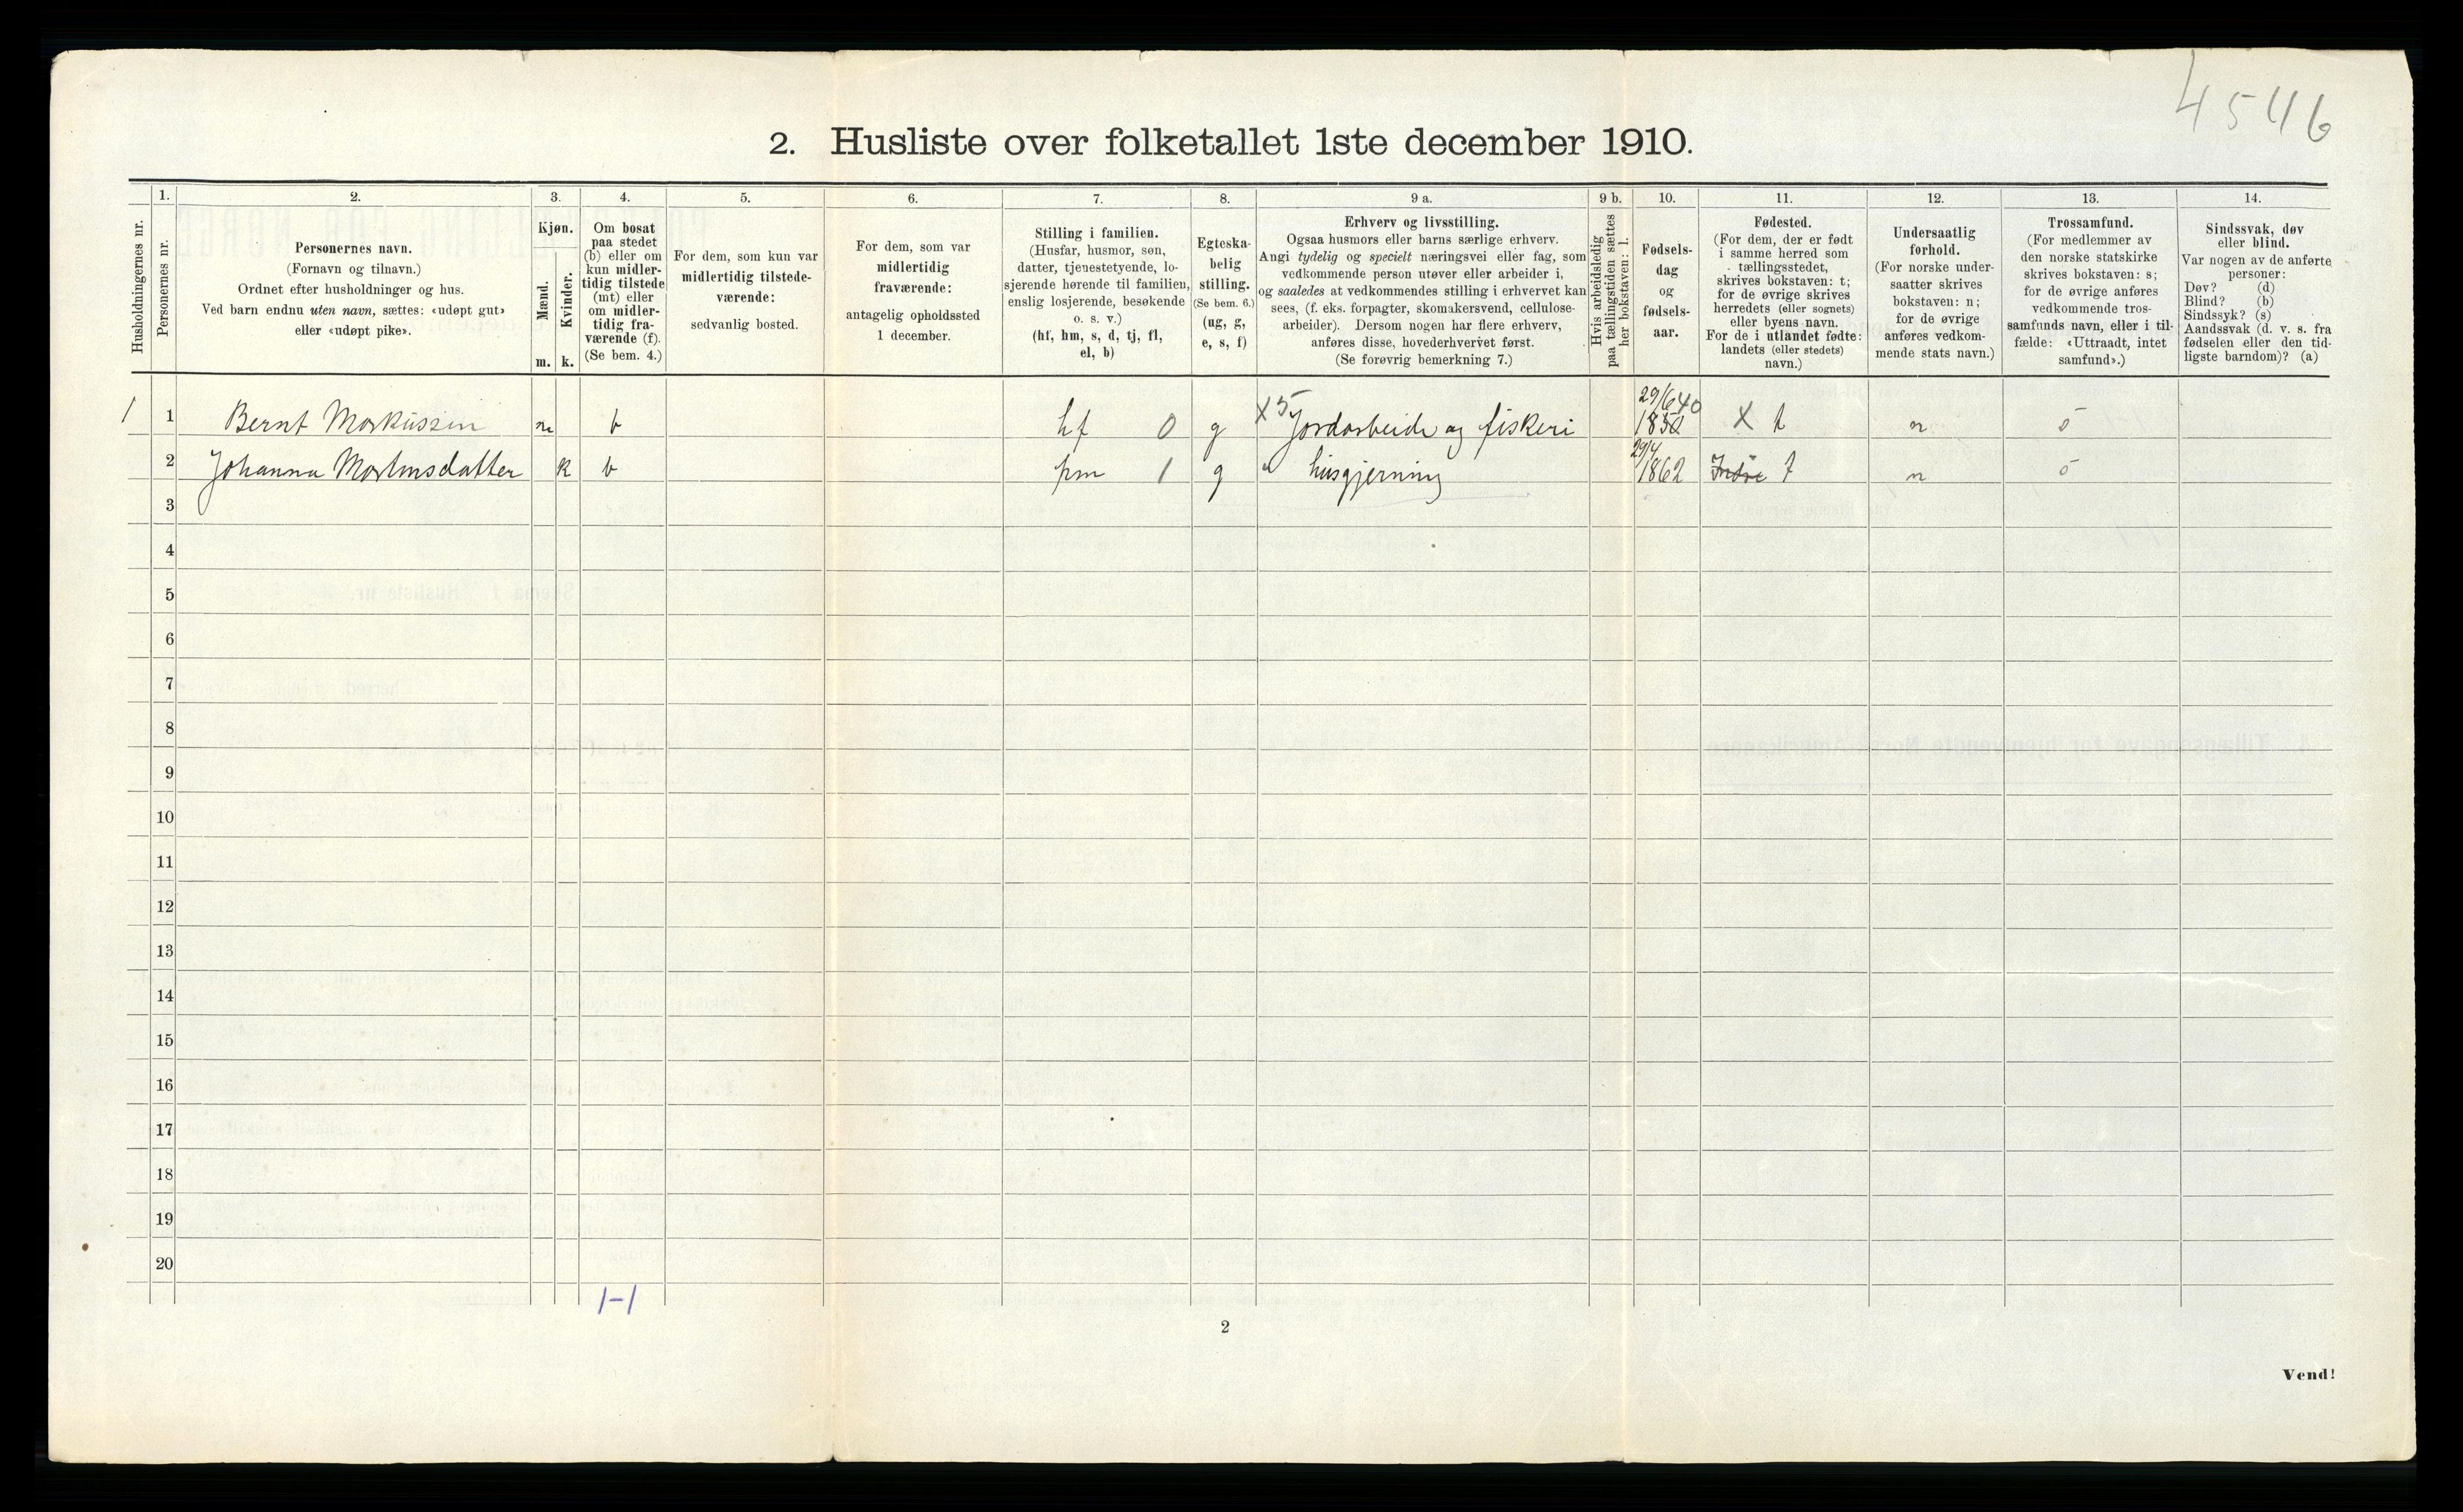 4546
2. Husliste over folketallet 1ste december 1910.
Husholdningernes nr.
1.
Personernes nr.
2.
Personernes navn.
(Fornavn og tilnavn.)
Ordnet efter husholdninger og hus.
Ved barn endnu uten navn, sættes: «udøpt gut»
eller «udøpt pike».
3.
Kjøn.
Mænd.
m.
Kvinder.
k.
4.
Om bosat
paa stedet
(b) eller om
kun midler-
tidig tilstede
(mt) eller
om midler-
tidig fra-
værende (f).
(Se bem. 4.)
5.
For dem, som kun var
midlertidig tilstede-
værende:
sedvanlig bosted.
6.
For dem, som var
midlertidig
fraværende:
antagelig opholdssted
1 december.
7.
Stilling i familien.
(Husfar, husmor, søn,
datter, tjenestetyende, lo-
sjerende hørende til familien,
enslig losjerende, besøkende
o. s. v.)
(hf, hm, s, d, tj, fl,
el, b)
8.
Egteska-
belig
stilling.
(Se bem. 6.)
(ug, g,
e, s, f)
9 a.
Erhverv og livsstilling.
Ogsaa husmors eller barns særlige erhverv.
Angi tydelig og specielt næringsvei eller fag, som
vedkommende person utøver eller arbeider i,
og saaledes at vedkommendes stilling i erhvervet kan
sees, (f. eks. forpagter, skomakersvend, cellulose-
arbeider). Dersom nogen har flere erhverv,
anføres disse, hovederhvervet først.
(Se forøvrig bemerkning 7.)
9 b.
Hvis arbeidsledig
paa tællingstiden sættes
her bokstaven: l.
10.
Fødsels-
dag
og
fødsels-
aar.
11.
Fødested.
(For dem, der er født
i samme herred som
tællingsstedet,
skrives bokstaven: t;
for de øvrige skrives
herredets (eller sognets)
eller byens navn.
For de i utlandet fødte:
landets (eller stedets)
navn.)
12.
Undersaatlig
forhold.
(For norske under-
saatter skrives
bokstaven: n;
for de øvrige
anføres vedkom-
mende stats navn.)
13.
Trossamfund.
(For medlemmer av
den norske statskirke
skrives bokstaven: s;
for de øvrige anføres
vedkommende tros-
samfunds navn, eller i til-
fælde: «Uttraadt, intet
samfund».)
14.
Sindssvak, døv
eller blind.
Var nogen av de anførte
personer:
Døv? (d)
Blind? (b)
Sindssyk? (s)
Aandssvak (d. v. s. fra
fødselen eller den tid-
ligste barndom)? (a)
1 1 Bernt Markussen m b hf 0 g X 5 Jordarbeide og fiskeri 29/6 40 X t n s
2 Johanna Mortinsdatter k b hm 1 g " husgjerning 29/4 1862 Indre t n s
3
4
5
6
7
8
9
10
11
12
13
14
15
16
17
18
19
20
1-1
2
Vend!